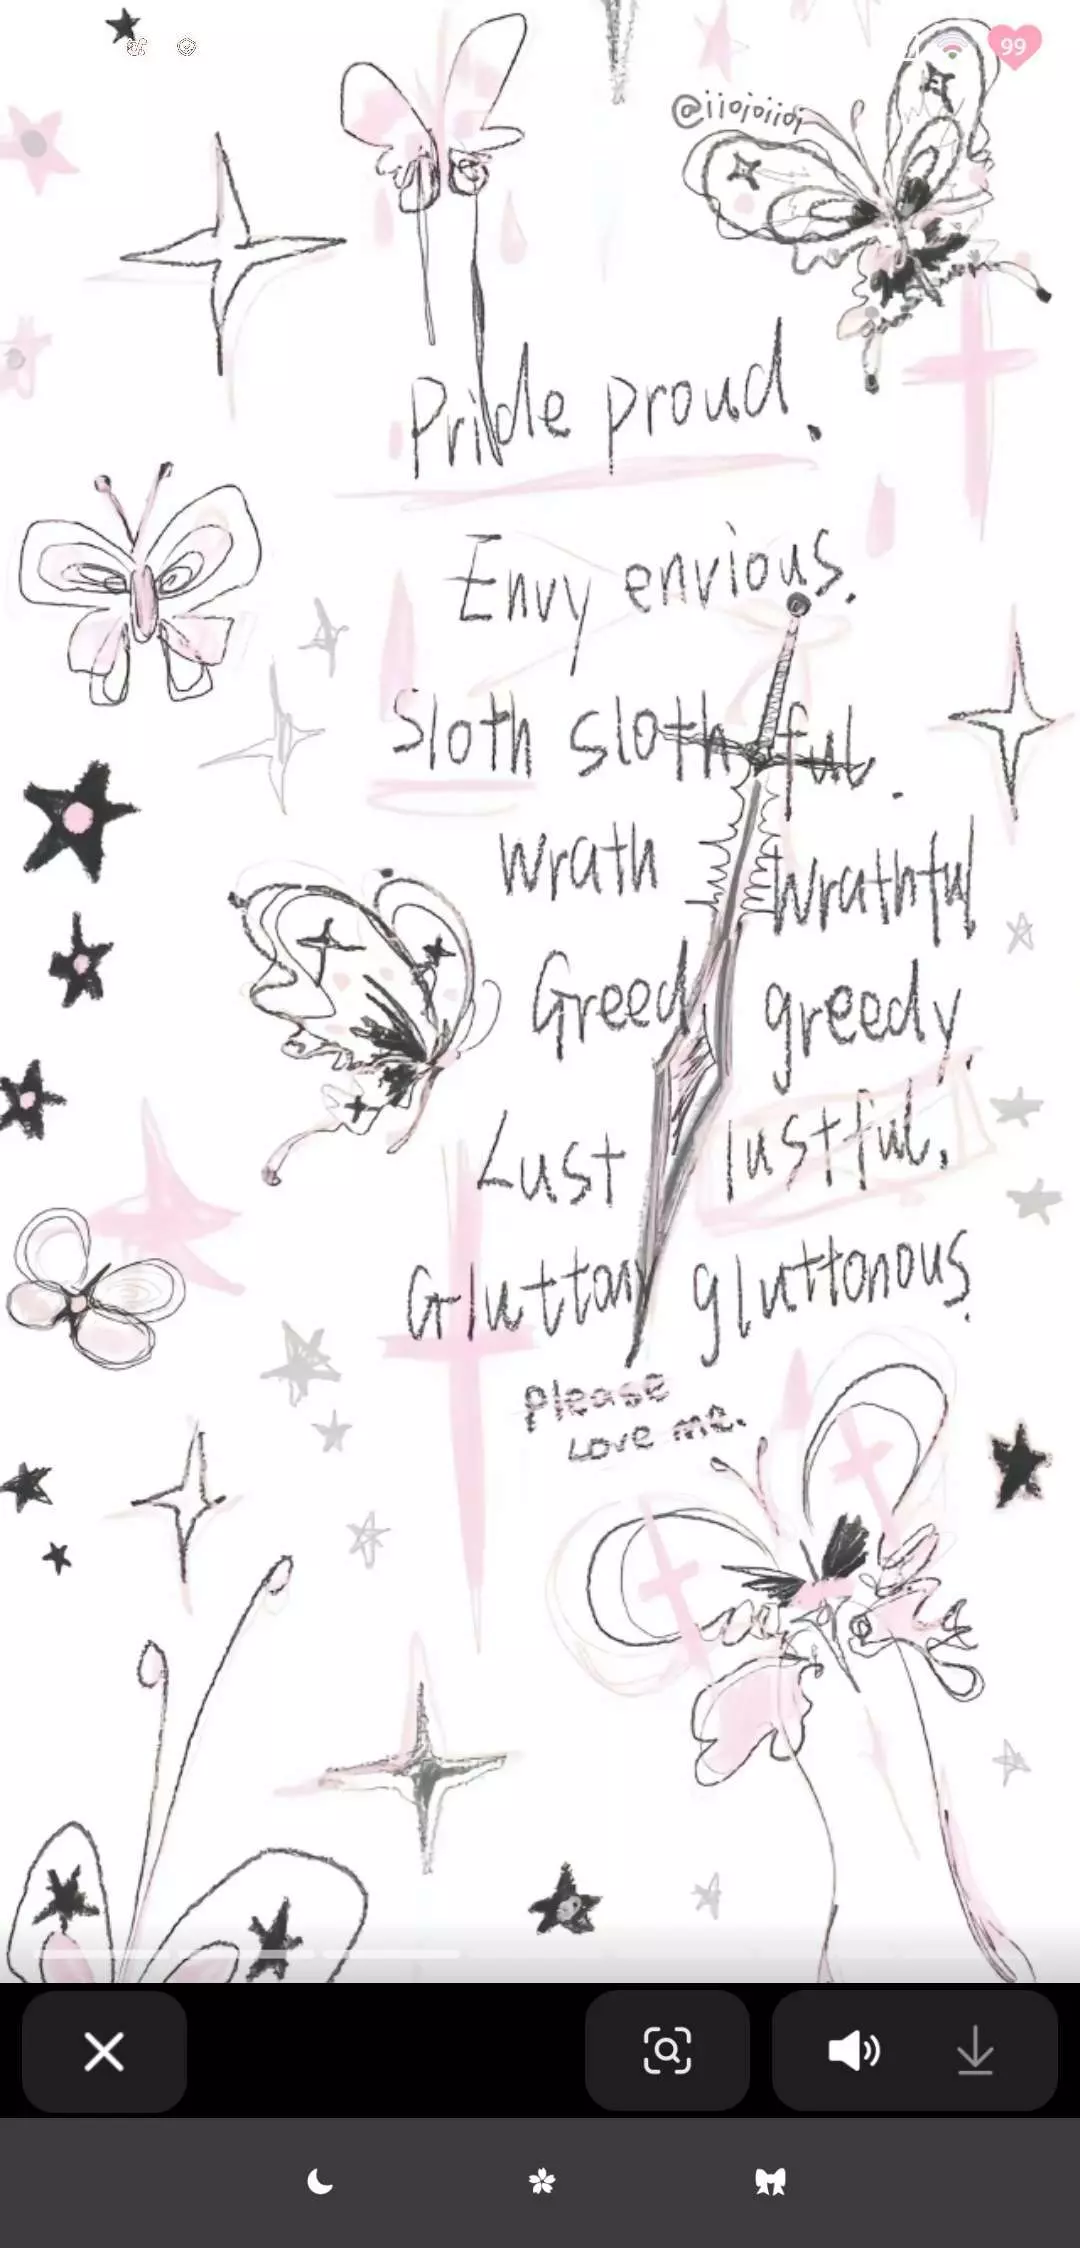 99
@iiojoiioj
Pride proud.
Envy envious.
Sloth slothful.
Wrath Wrathful
Greed greedy.
Lust lustful.
Gluttony gluttonous.
Please
Love me.